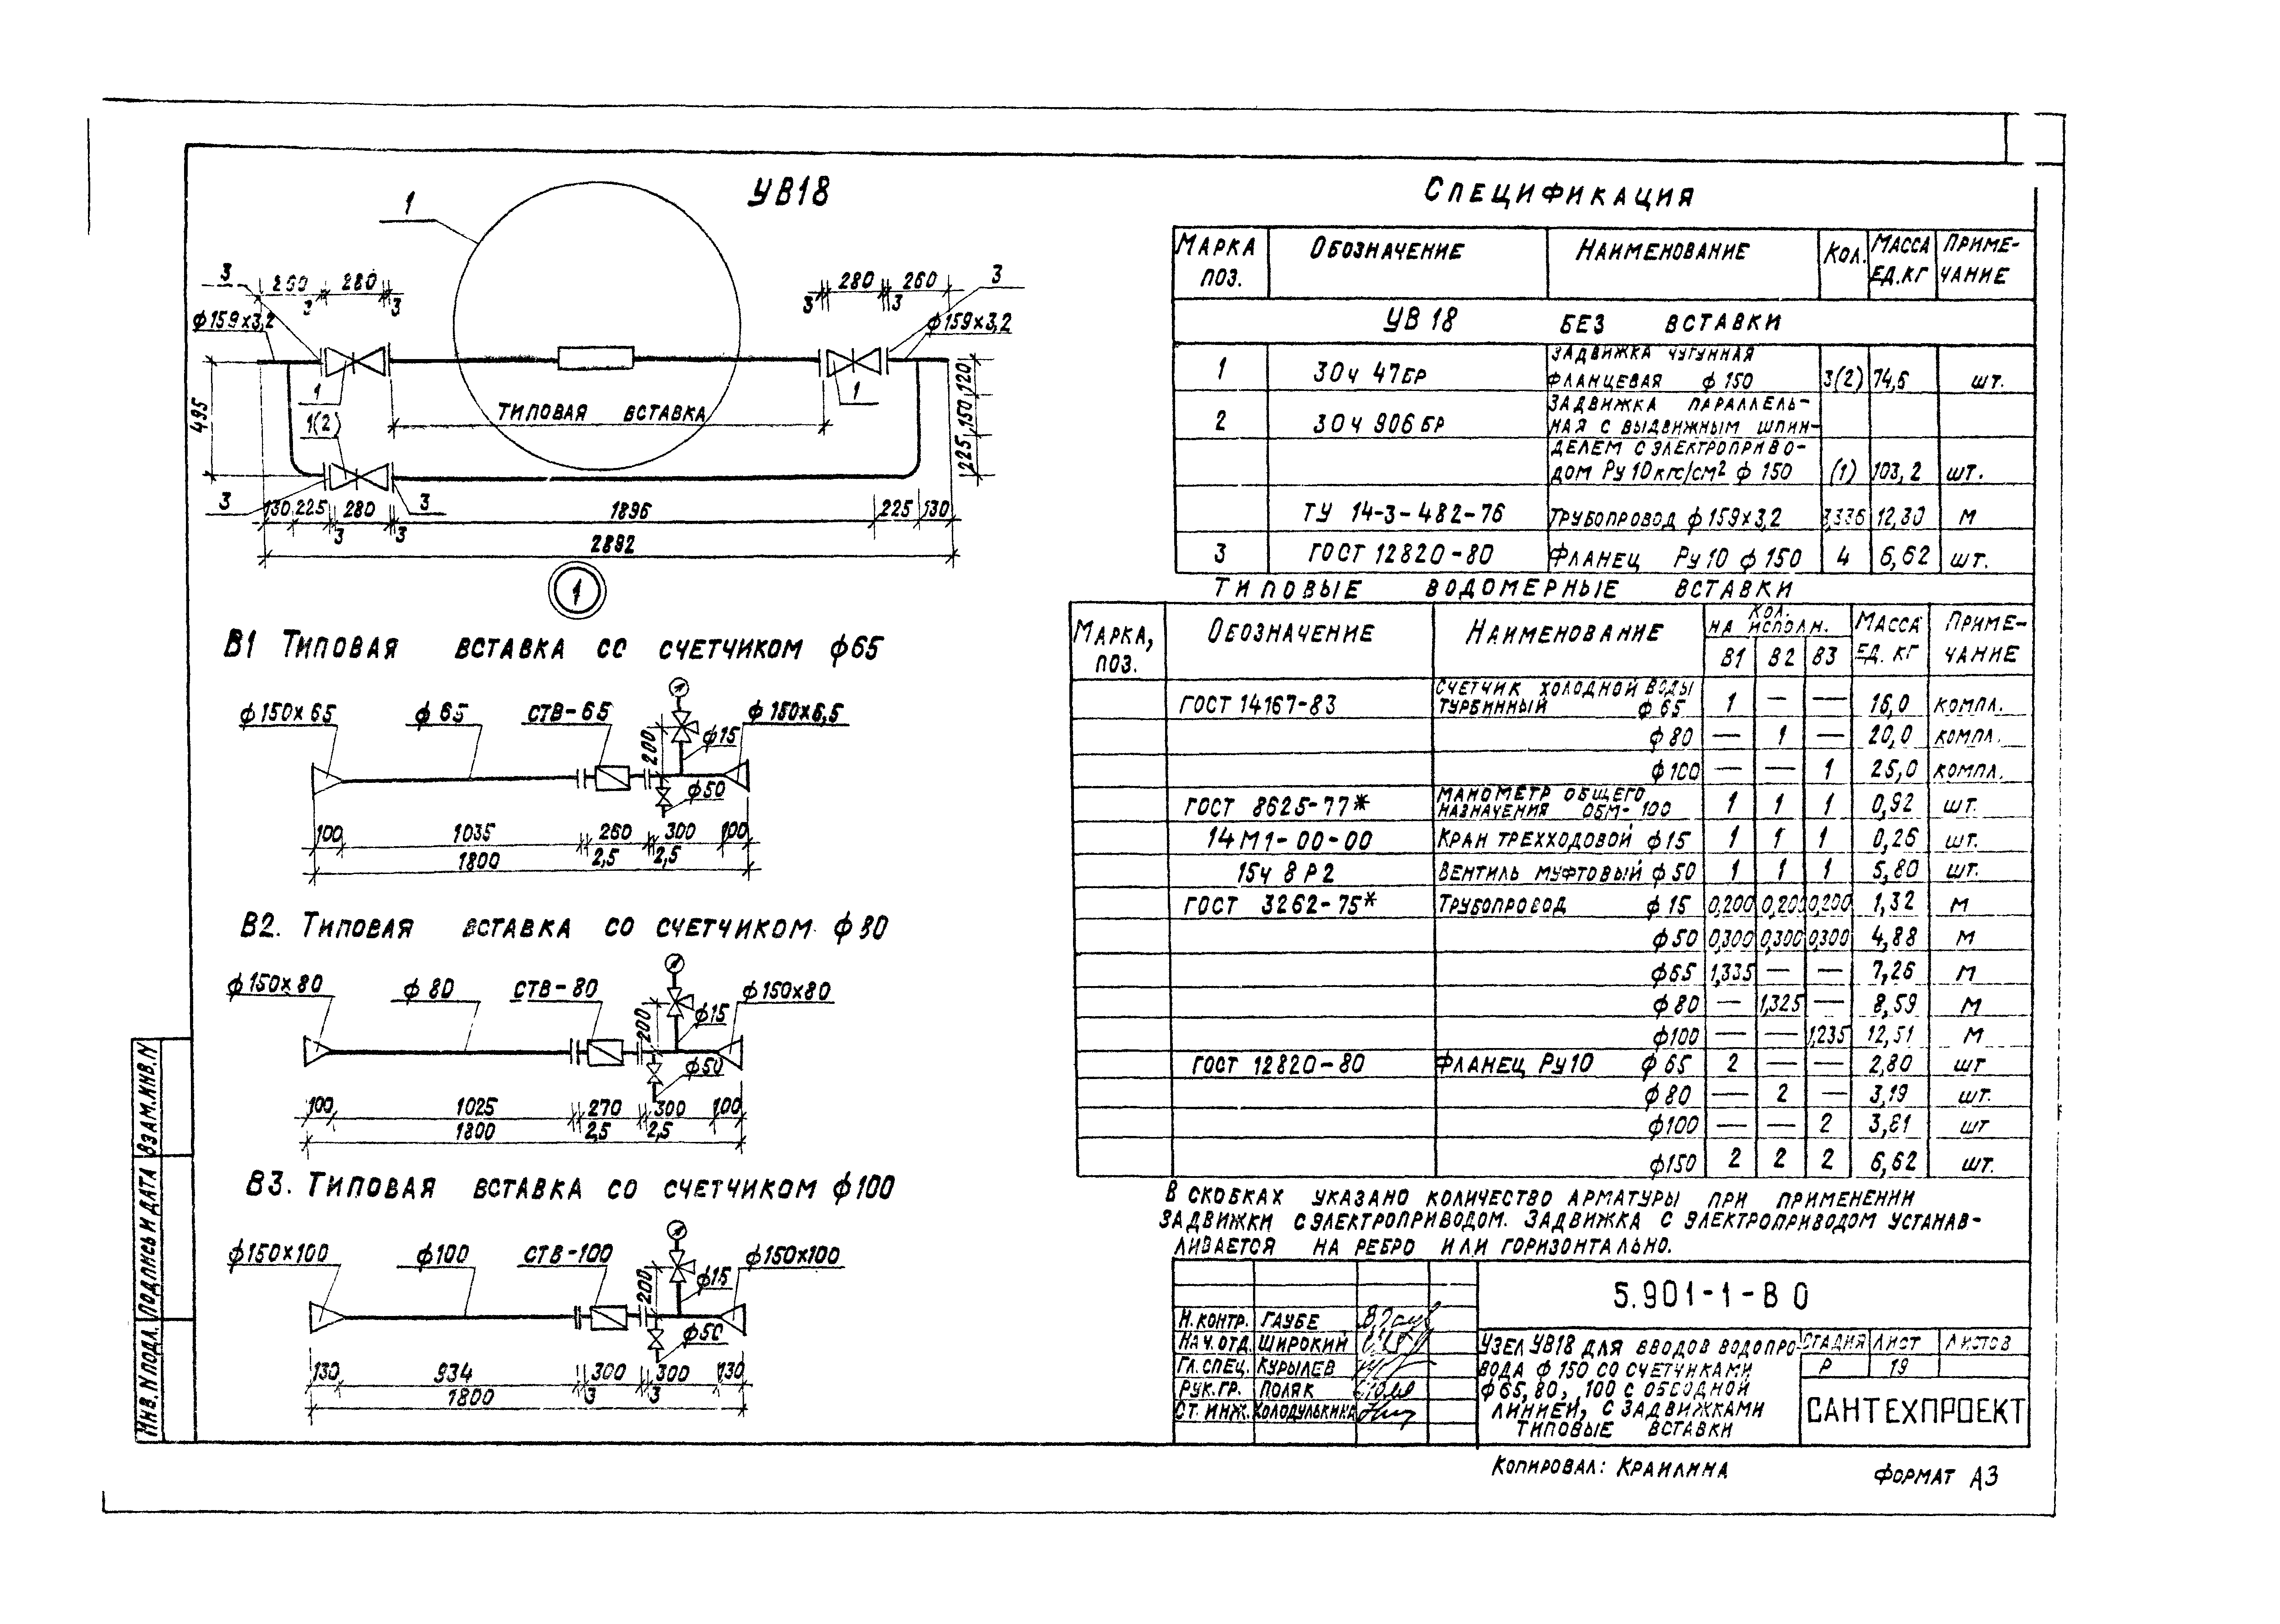 УВ18
1
3
260
280
3
3
280
260
3
3
3
ф159х3,2
ф159х3,2
1
1
1(2)
ТИПОВАЯ ВСТАВКА
495
120
150
225
3
3
130
225
280
1896
225
130
3
3
2892
1
В1 ТИПОВАЯ ВСТАВКА СО СЧЕТЧИКОМ ф65
ф150х65
ф65
СТВ-65
200
ф15
ф150х6,5
ф50
100
1035
260
300
100
2,5
2,5
1800
В2. ТИПОВАЯ ВСТАВКА СО СЧЕТЧИКОМ ф80
ф150х80
ф80
СТВ-80
200
ф15
ф150х80
ф50
100
1025
270
300
100
2,5
2,5
1800
В3. ТИПОВАЯ ВСТАВКА СО СЧЕТЧИКОМ ф100
ф150х100
ф100
СТВ-100
200
ф15
ф150х100
ф50
130
934
300
300
130
3
3
1800
СПЕЦИФИКАЦИЯ
МАРКА ПОЗ. ОБОЗНАЧЕНИЕ НАИМЕНОВАНИЕ КОЛ. МАССА ЕД.КГ ПРИМЕ-ЧАНИЕ
УВ 18 БЕЗ ВСТАВКИ
ЗАДВИЖКА ЧУГУННАЯ
1 30ч 47БР ФЛАНЦЕВАЯ ф150 3(2) 74,6 шт.
ЗАДВИЖКА ПАРАЛЛЕЛЬ-
2 30ч 906БР НАЯ С ВЫДВИЖНЫМ ШПИН-
ДЕЛЕМ С ЭЛЕКТРОПРИВО-
ДОМ Ру10кгс/см² ф150 (1) 103,2 шт.
ТУ 14-3-482-76 ТРУБОПРОВОД ф159х3,2 3,336 12,30 М
3 ГОСТ 12820-80 ФЛАНЕЦ Ру10 ф150 4 6,62 шт.
ТИПОВЫЕ ВОДОМЕРНЫЕ ВСТАВКИ
МАРКА, ПОЗ. ОБОЗНАЧЕНИЕ НАИМЕНОВАНИЕ КОЛ. НА ИСПОЛН. МАССА ЕД. КГ ПРИМЕ-ЧАНИЕ
В1 В2 В3
СЧЕТЧИК ХОЛОДНОЙ ВОДЫ
ГОСТ 14167-83 ТУРБИННЫЙ ф65 1 — — 16,0 КОМПЛ.
ф80 — 1 — 20,0 КОМПЛ.
ф100 — — 1 25,0 КОМПЛ.
МАНОМЕТР ОБЩЕГО
ГОСТ 8625-77* НАЗНАЧЕНИЯ ОБМ-100 1 1 1 0,92 шт.
14М1-00-00 КРАН ТРЕХХОДОВОЙ ф15 1 1 1 0,26 шт.
15ч 8Р2 ВЕНТИЛЬ МУФТОВЫЙ ф50 1 1 1 5,80 шт.
ГОСТ 3262-75* ТРУБОПРОВОД ф15 0,200 0,200 0,200 1,32 М
ф50 0,300 0,300 0,300 4,88 М
ф65 1,335 — — 7,26 М
ф80 — 1,325 — 8,59 М
ф100 — — 1,235 12,51 М
ГОСТ 12820-80 ФЛАНЕЦ Ру10 ф65 2 — — 2,80 шт
ф80 — 2 — 3,19 шт.
ф100 — — 2 3,81 шт
ф150 2 2 2 6,62 шт.
В СКОБКАХ УКАЗАНО КОЛИЧЕСТВО АРМАТУРЫ ПРИ ПРИМЕНЕНИИ
ЗАДВИЖКИ С ЭЛЕКТРОПРИВОДОМ. ЗАДВИЖКА С ЭЛЕКТРОПРИВОДОМ УСТАНАВ-
ЛИВАЕТСЯ НА РЕБРО ИЛИ ГОРИЗОНТАЛЬНО.
5.901-1-В0
Н.КОНТР. ГАУБЕ
НАЧ.ОТД. ШИРОКИЙ
ГЛ.СПЕЦ. КУРЫЛЕВ
РУК.ГР. ПОЛЯК
СТ.ИНЖ. ХОЛОДУЛЬКИНА
УЗЕЛ УВ18 ДЛЯ ВВОДОВ ВОДОПРО
ВОДА ф150 СО СЧЕТЧИКАМИ
ф65, 80, 100 С ОБВОДНОЙ
ЛИНИЕЙ, С ЗАДВИЖКАМИ
ТИПОВЫЕ ВСТАВКИ
СТАДИЯ ЛИСТ ЛИСТОВ
Р 19
САНТЕХПРОЕКТ
КОПИРОВАЛ: КРАИЛИНА
ФОРМАТ А3
ИНВ.N ПОДЛ.
ПОДПИСЬ И ДАТА
ВЗАМ.ИНВ.N